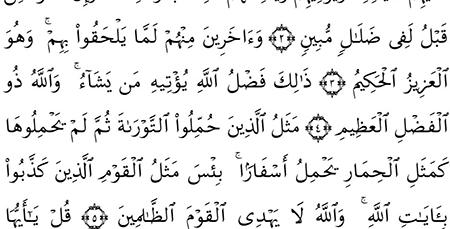 قَبْلُ لَفِى ضَلَٰلٍ مُّبِينٍ ﴿٢﴾ وَءَاخَرِينَ مِنْهُمْ لَمَّا يَلْحَقُوا۟ بِهِمْ ۚ وَهُوَ
ٱلْعَزِيزُ ٱلْحَكِيمُ ﴿٣﴾ ذَٰلِكَ فَضْلُ ٱللَّهِ يُؤْتِيهِ مَن يَشَآءُ ۚ وَٱللَّهُ ذُو
ٱلْفَضْلِ ٱلْعَظِيمِ ﴿٤﴾ مَثَلُ ٱلَّذِينَ حُمِّلُوا۟ ٱلتَّوْرَىٰةَ ثُمَّ لَمْ يَحْمِلُوهَا
كَمَثَلِ ٱلْحِمَارِ يَحْمِلُ أَسْفَارًۢا ۚ بِئْسَ مَثَلُ ٱلْقَوْمِ ٱلَّذِينَ كَذَّبُوا۟
بِـَٔايَٰتِ ٱللَّهِ ۚ وَٱللَّهُ لَا يَهْدِى ٱلْقَوْمَ ٱلظَّٰلِمِينَ ﴿٥﴾ قُلْ يَٰٓأَيُّهَا